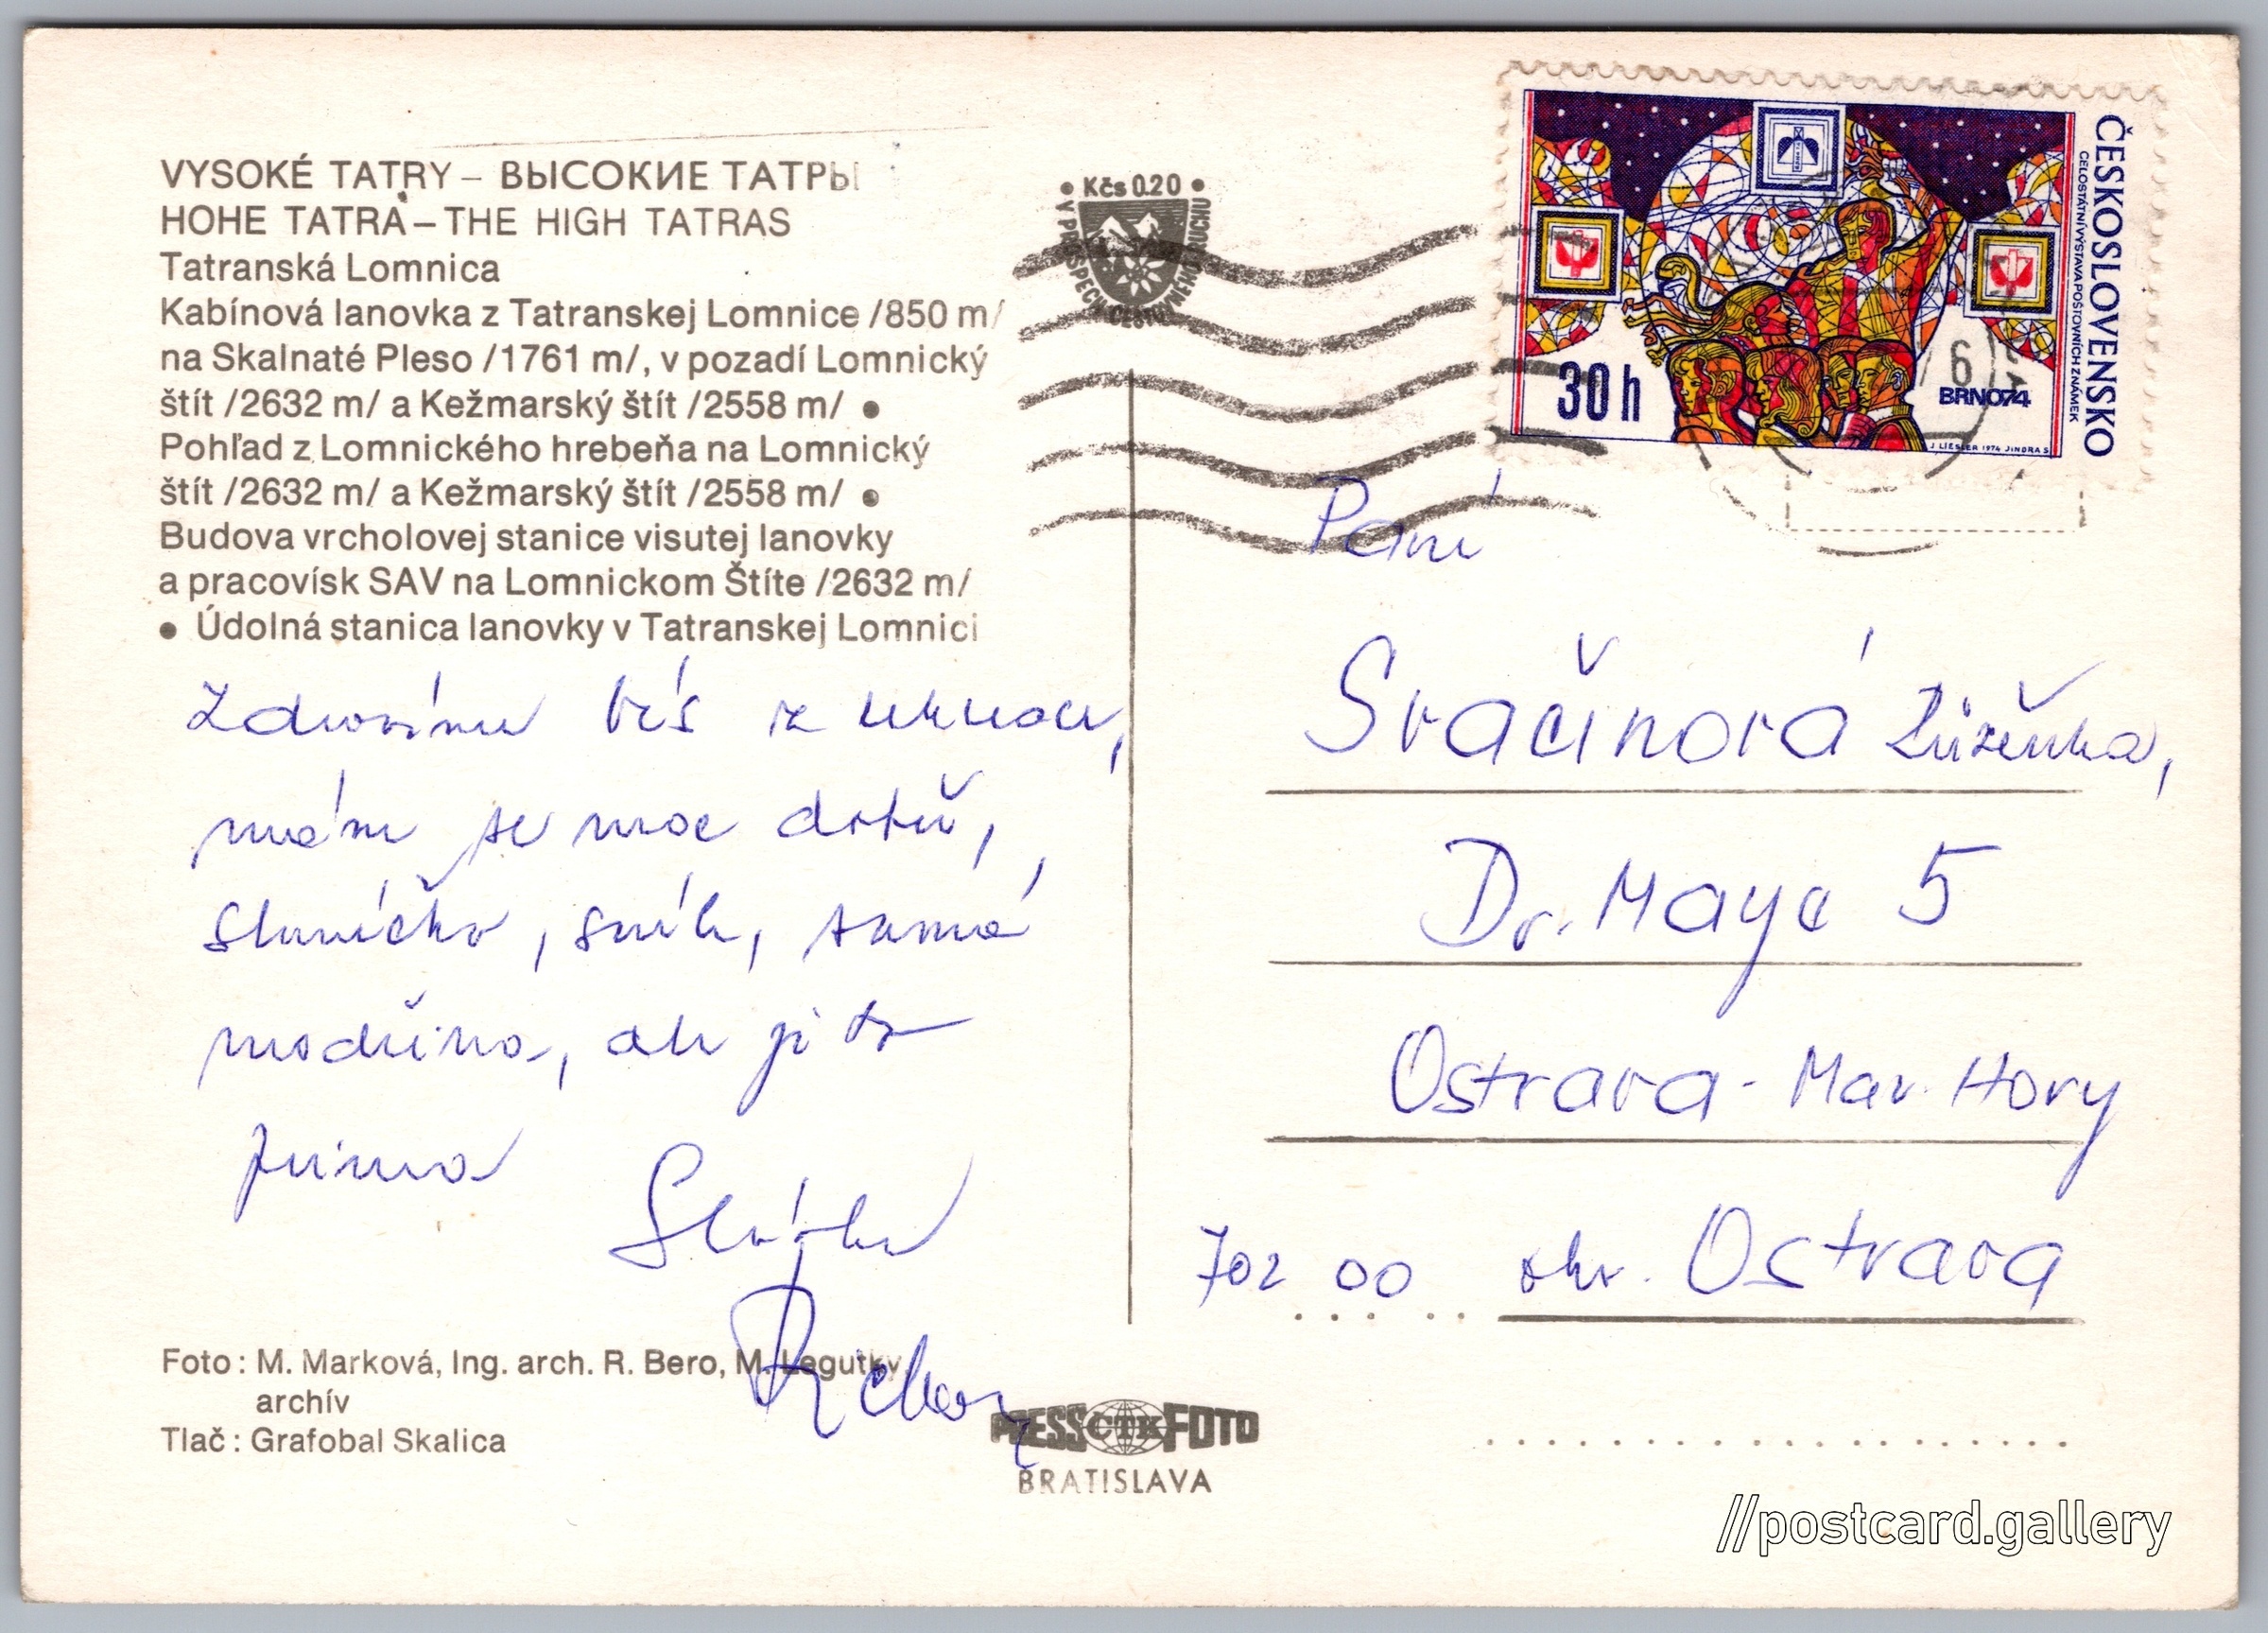 VYSOKÉ TATRY – ВЫСОКИЕ ТАТРЫ
HOHE TATRA – THE HIGH TATRAS
Tatranská Lomnica
Kabínová lanovka z Tatranskej Lomnice /850 m/
na Skalnaté Pleso /1761 m/, v pozadí Lomnický
štít /2632 m/ a Kežmarský štít /2558 m/ ●
Pohľad z Lomnického hrebeňa na Lomnický
štít /2632 m/ a Kežmarský štít /2558 m/ ●
Budova vrcholovej stanice visutej lanovky
a pracovísk SAV na Lomnickom Štíte /2632 m/
● Údolná stanica lanovky v Tatranskej Lomnici
Zdravíme Vás z
mám se moc dobře,
sluníčko, sníh, samá
modřina, ale je to
prima
Foto: M. Marková, Ing. arch. R. Bero, M. Legutky,
archív
Tlač: Grafobal Skalica
PRESS ČTK FOTO
BRATISLAVA
• Kčs 0.20 •
• V PROSPECH CESTOVNÉHO RUCHU
ČESKOSLOVENSKO
CELOSTÁTNÍ VÝSTAVA POŠTOVNÍCH ZNÁMEK
30 h
BRNO74
J. LIESLER 1974 JINDRA S
6
Paní
Svačinová Růženka,
Dr. Maye 5
Ostrava - Mar. Hory
702 00 okr. Ostrava
//postcard.gallery